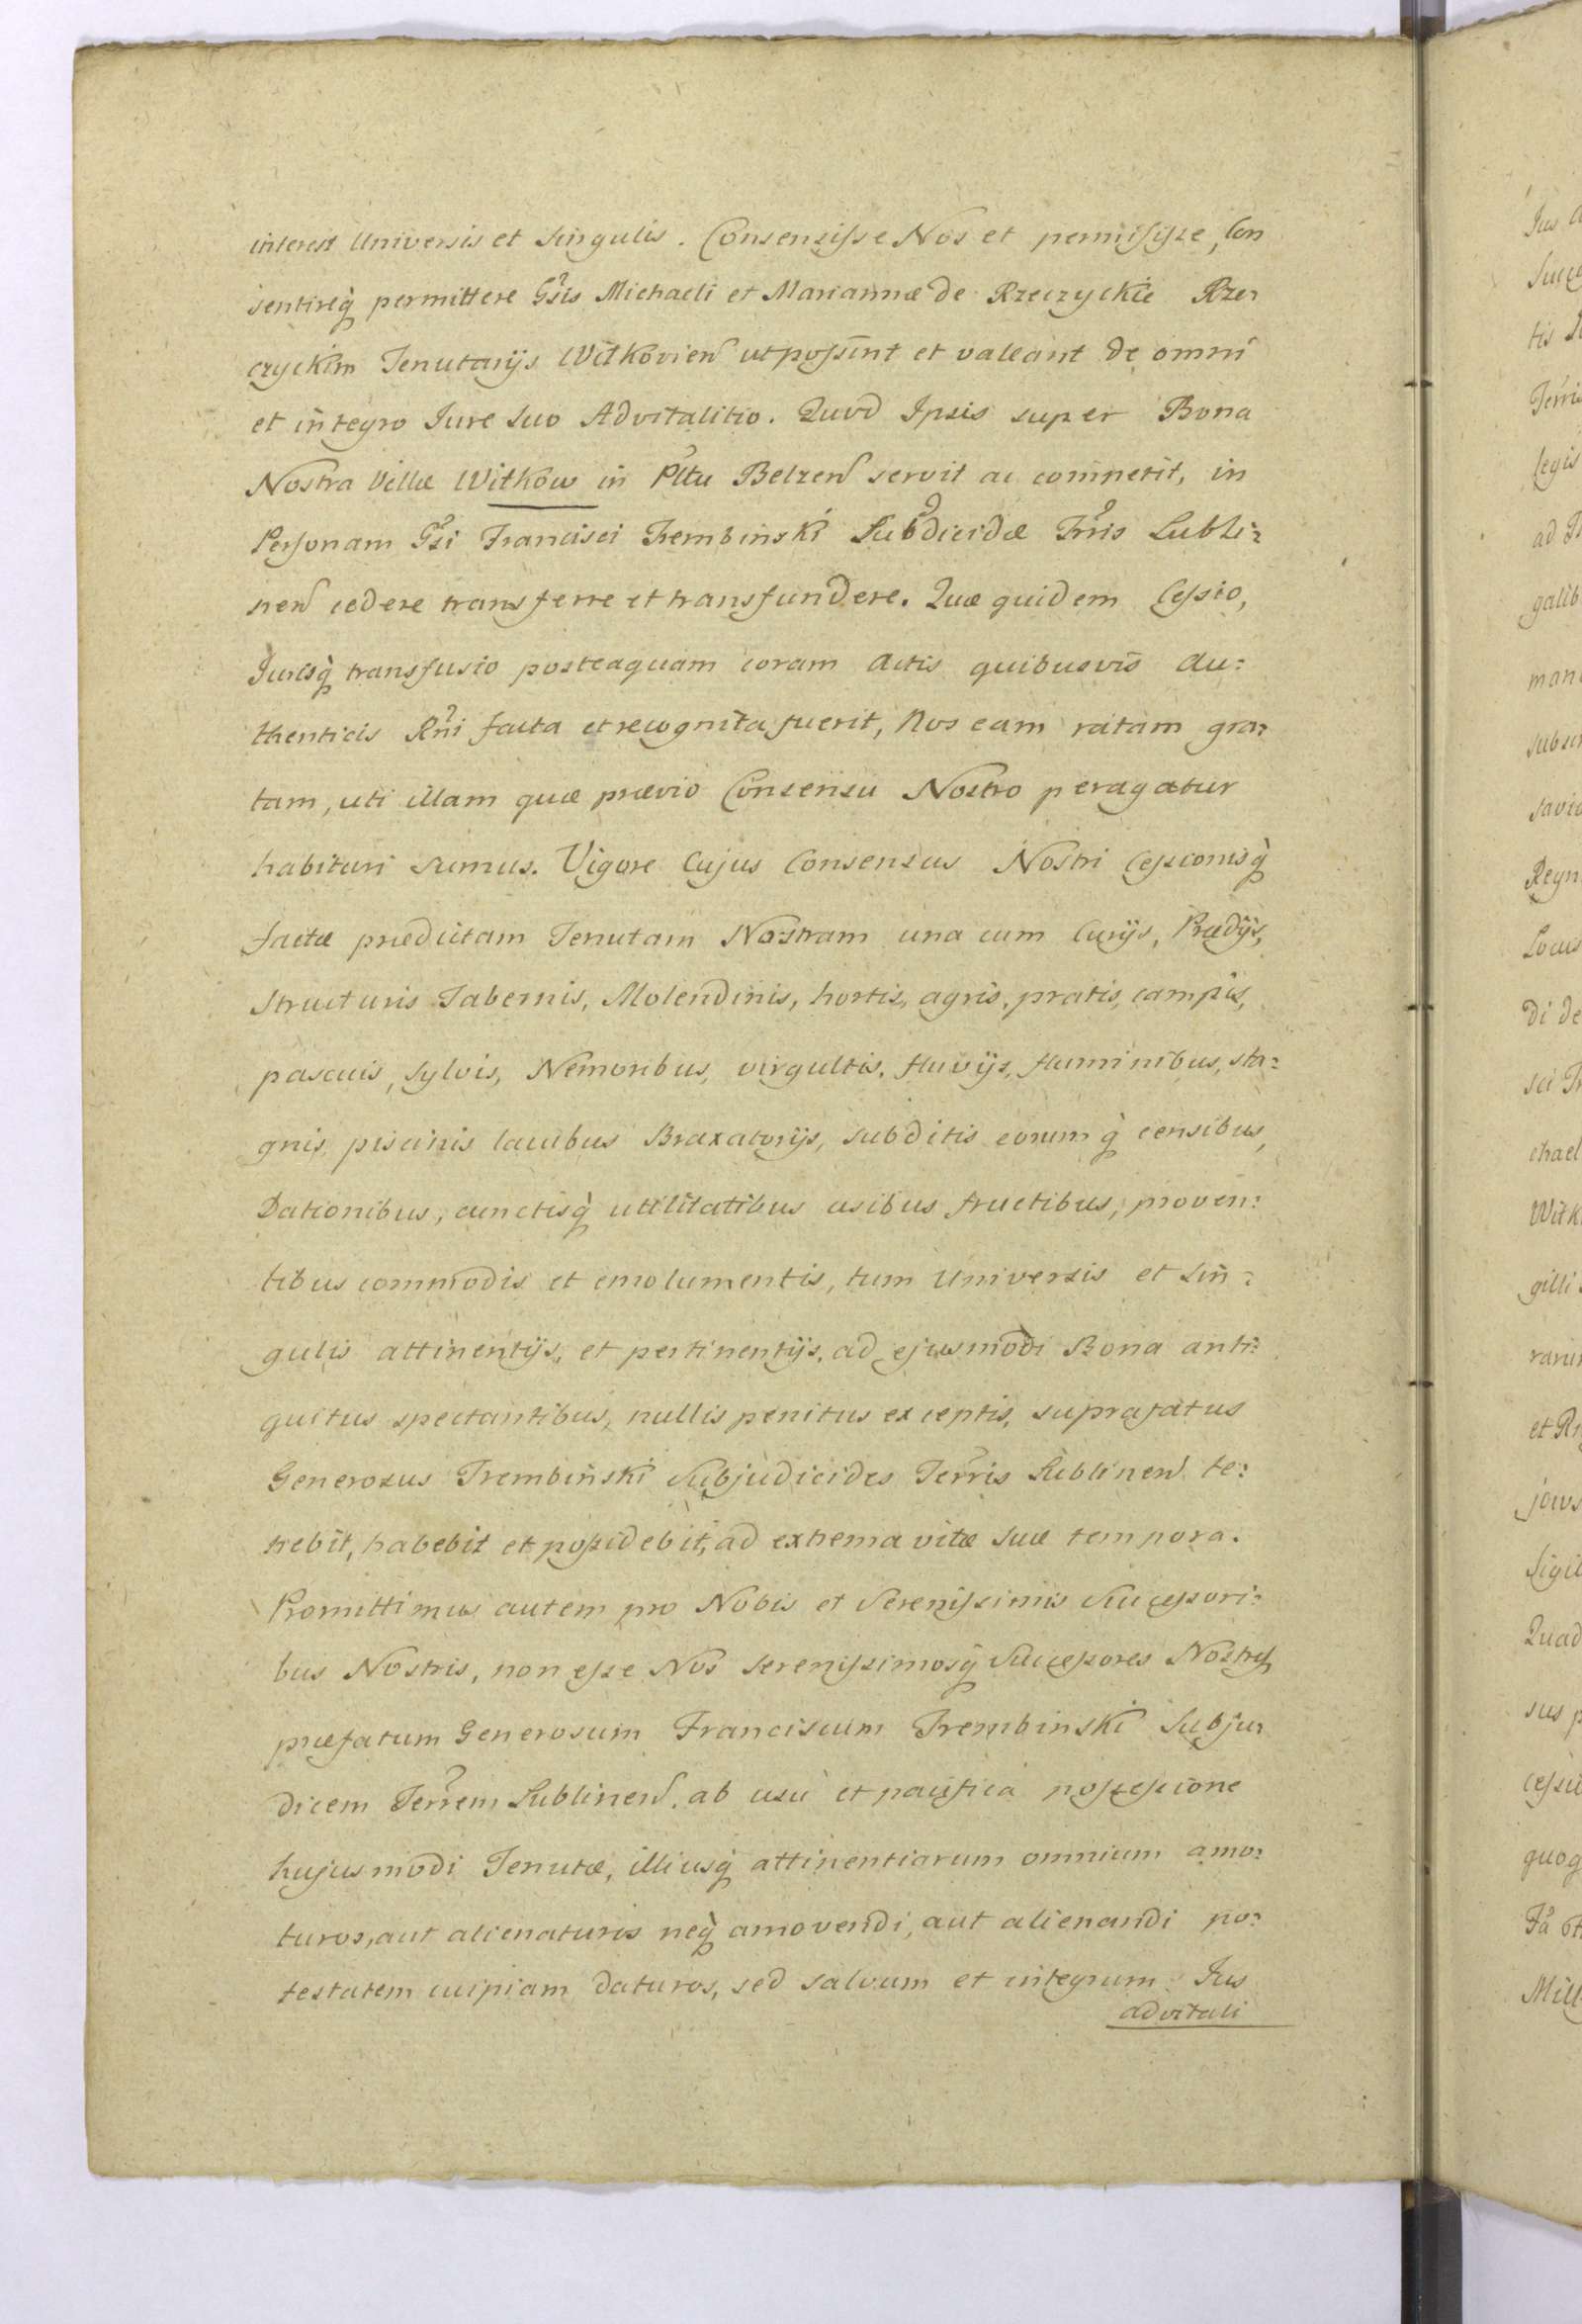 interest Universis et Singulis. Consensisse Nos et permisisse, Con
sentireq́ permittere Gsis Michaeli et Mariannæ de Rzeczyckie Rze=
czyckim Tenutarijs Witkovien ut possint et valeant de omni
et integro Iure suo Advitalitio. Quod Ipsis super Bona
Nostra Villæ Witkow in Pltu Belzen servit ac competit, in
Personam Gsi Francisci Trembinski Subdicidæ Trris Lubli=
nen cedere transferre et transfundere. Quæ quidem Cessio,
Iurisq́ transfusio posteaquam coram Actis quibusvis Au=
thenticis Rni facta et recognita fuerit, Nos eam ratam gra=
tam, uti illam quæ prævio Consensu Nostro peragatur
habituri sumus. Vigore Cujus Consensus Nostri Cessionisq́
factæ prædictam Tenutam Nostram una cum Curijs, Prædijs,
Structuris Tabernis, Molendinis, hortis, agris, pratis, campis,
pascuis, sylvis, Nemoribus, virgultis, fluvijs, fluminibus, sta=
gnis, piscinis lacubus Braxatorijs, subditis eorumq́ censibus,
Dationibus, cunctisq́ utilitatibus usibus fructibus, proven=
tibus commodis et emolumentis, tum Universis et Sin=
gulis attinentijs, et pertinentijs, ad ejusmodi Bona anti=
quitus spectantibus, nullis penitus exceptis, suprafatus
Generosus Trembinski Subjudicides Terris Lublinen te=
nebit, habebit et possidebit, ad extrema vitæ suæ tempora.
Promittimus autem pro Nobis et Serenissimis Successori=
bus Nostris, non esse Nos Serenissimosq́ Successores Nostros
præfatum Generosum Franciscum Trembinski Subju=
dicem Terrem Lublinen. ab usu et pacifica possessione
hujusmodi Tenutæ, illiusq́ attinentiarum omnium amo=
turos, aut alienaturis neq́ amovendi, aut alienandi po=
testatem cuipiam daturos, sed salvum et integrum Ius
advitali
Succe
tis
Terris
legis
ad
galib
man
subscr
Regn
Locus
di de
chael
Witk
gilli
et
Quad
sus
quoq
Mill